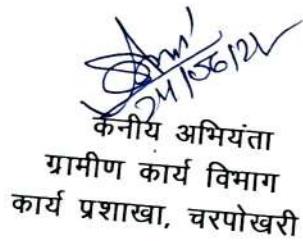 24/06/21
कनीय अभियंता
ग्रामीण कार्य विभाग
कार्य प्रशाखा, चरपोखरी